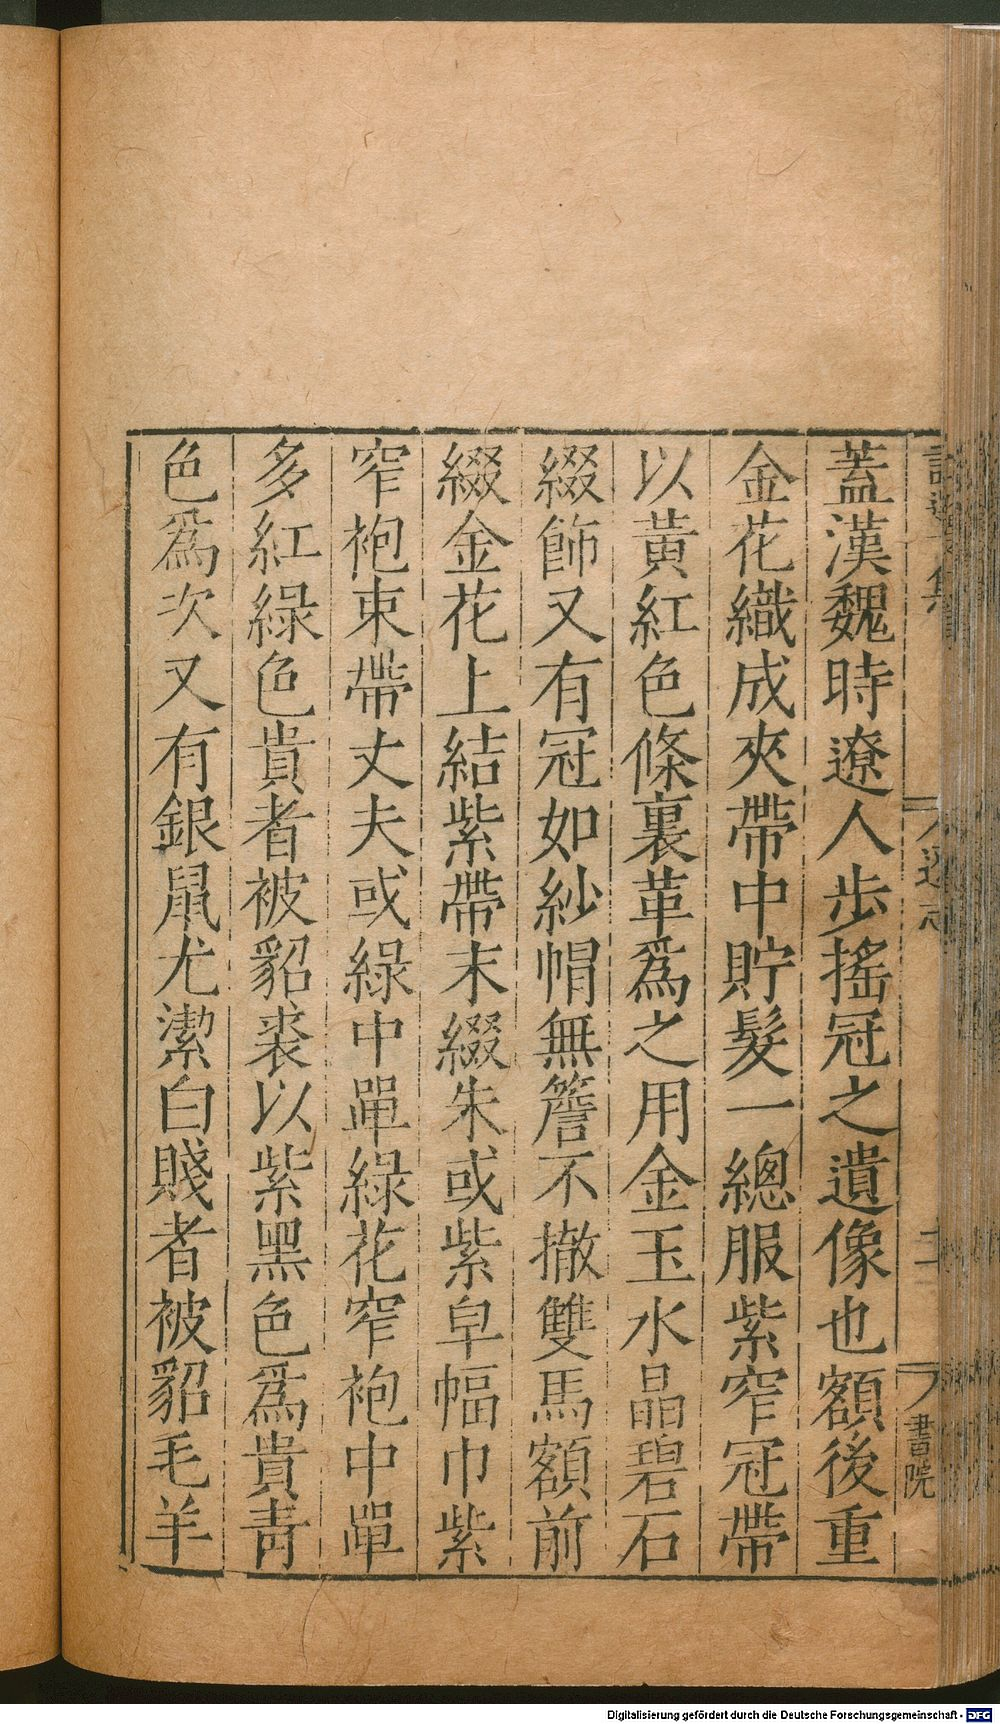 蓋漢魏時遼人步搖冠之遺像也額後重
金花織成夾帶中貯髮一總服紫窄冠帶
以黃紅色絛裏革爲之用金玉水晶碧石
綴飾又有冠如紗帽無簷不撤雙馬額前
綴金花上結紫帶末綴朱或紫皁幅巾紫
窄袍束帶丈夫或綠中單綠花窄袍中單
多紅綠色貴者被貂裘以紫黑色爲貴青
色爲次又有銀鼠尤潔白賤者被貂毛羊
書院
Digitalisierung gefördert durch die Deutsche Forschungsgemeinschaft - DFG